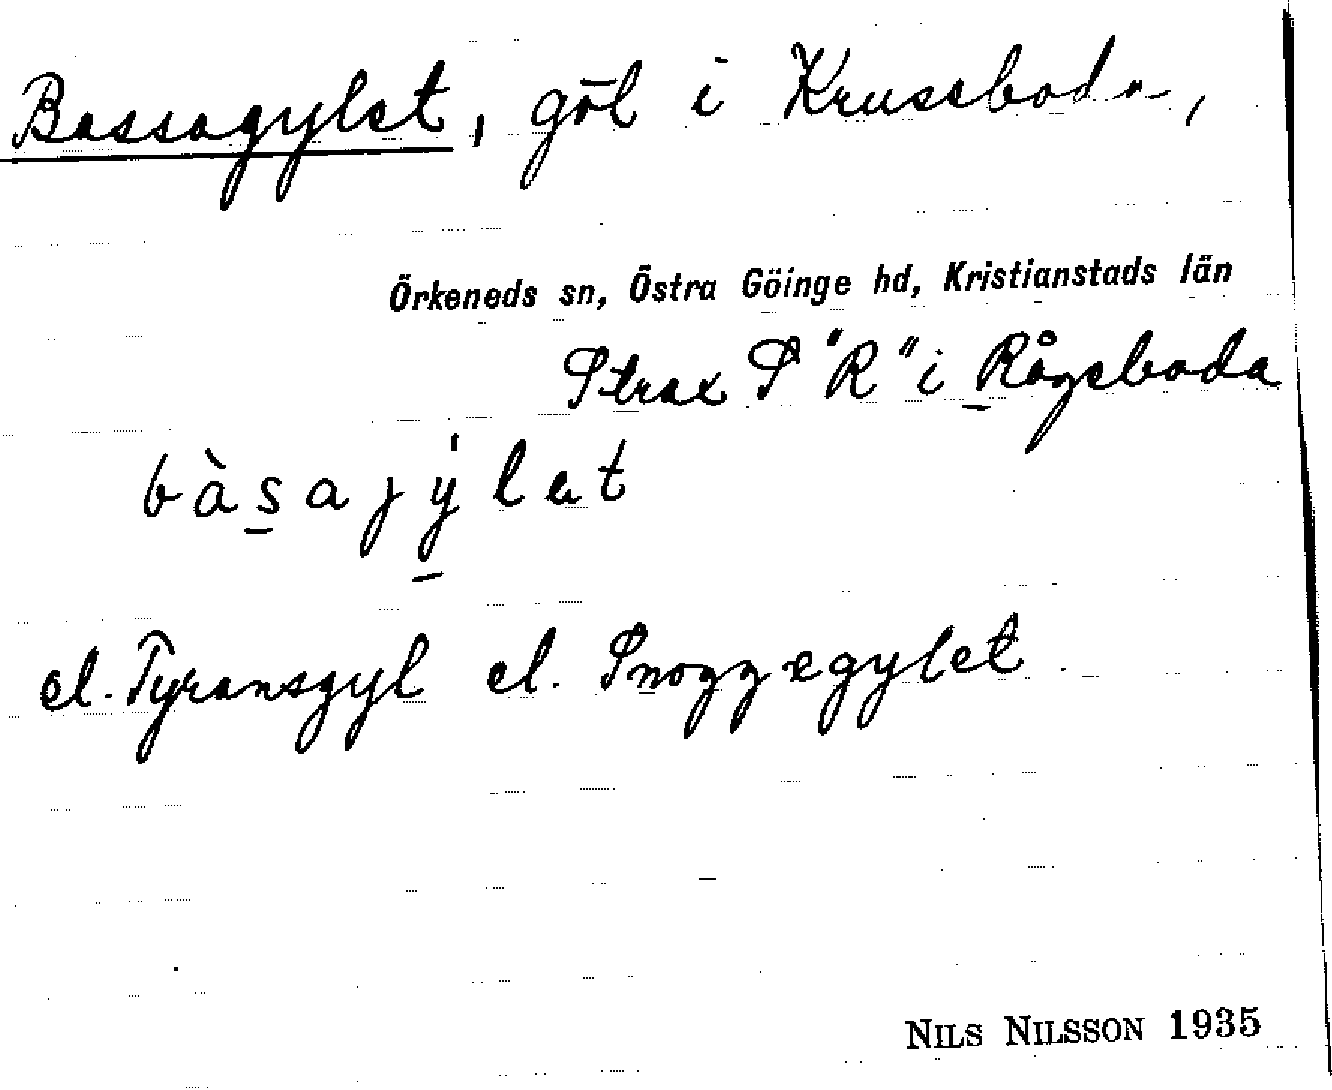 Bassagylet, göl i Kruseboda,
Örkeneds sn, Östra Göinge hd, Kristianstads län
Strax S "R" i Rågeboda
bàsajy̍lət
el. Tyransgyl el. Snoggegylet
NILS NILSSON 1935